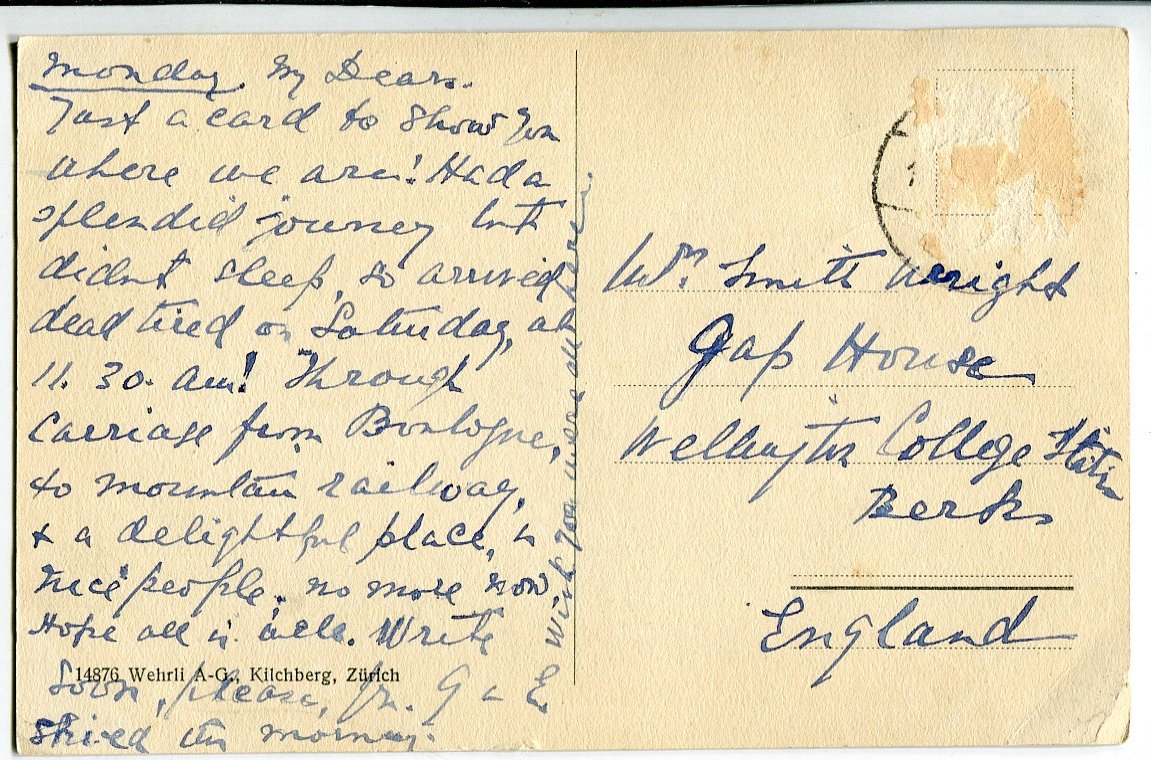 Monday. My Dears.
Just a card to show you
where we are! Had a
splendid journey but
didnt sleep, so arrived
dead tired on Saturday, at
11. 30. am! Through
carriage from Boulogne,
to mountain railway,
& a delightful place, &
nice people. no more now.
Hope all is well. Write
14876 Wehrli A-G., Kilchberg, Zürich
Soon, please, G & E
Skied this morning.
Wish you were all here.
Smith Wright
Gap House
Wellington College Station
Berks
England